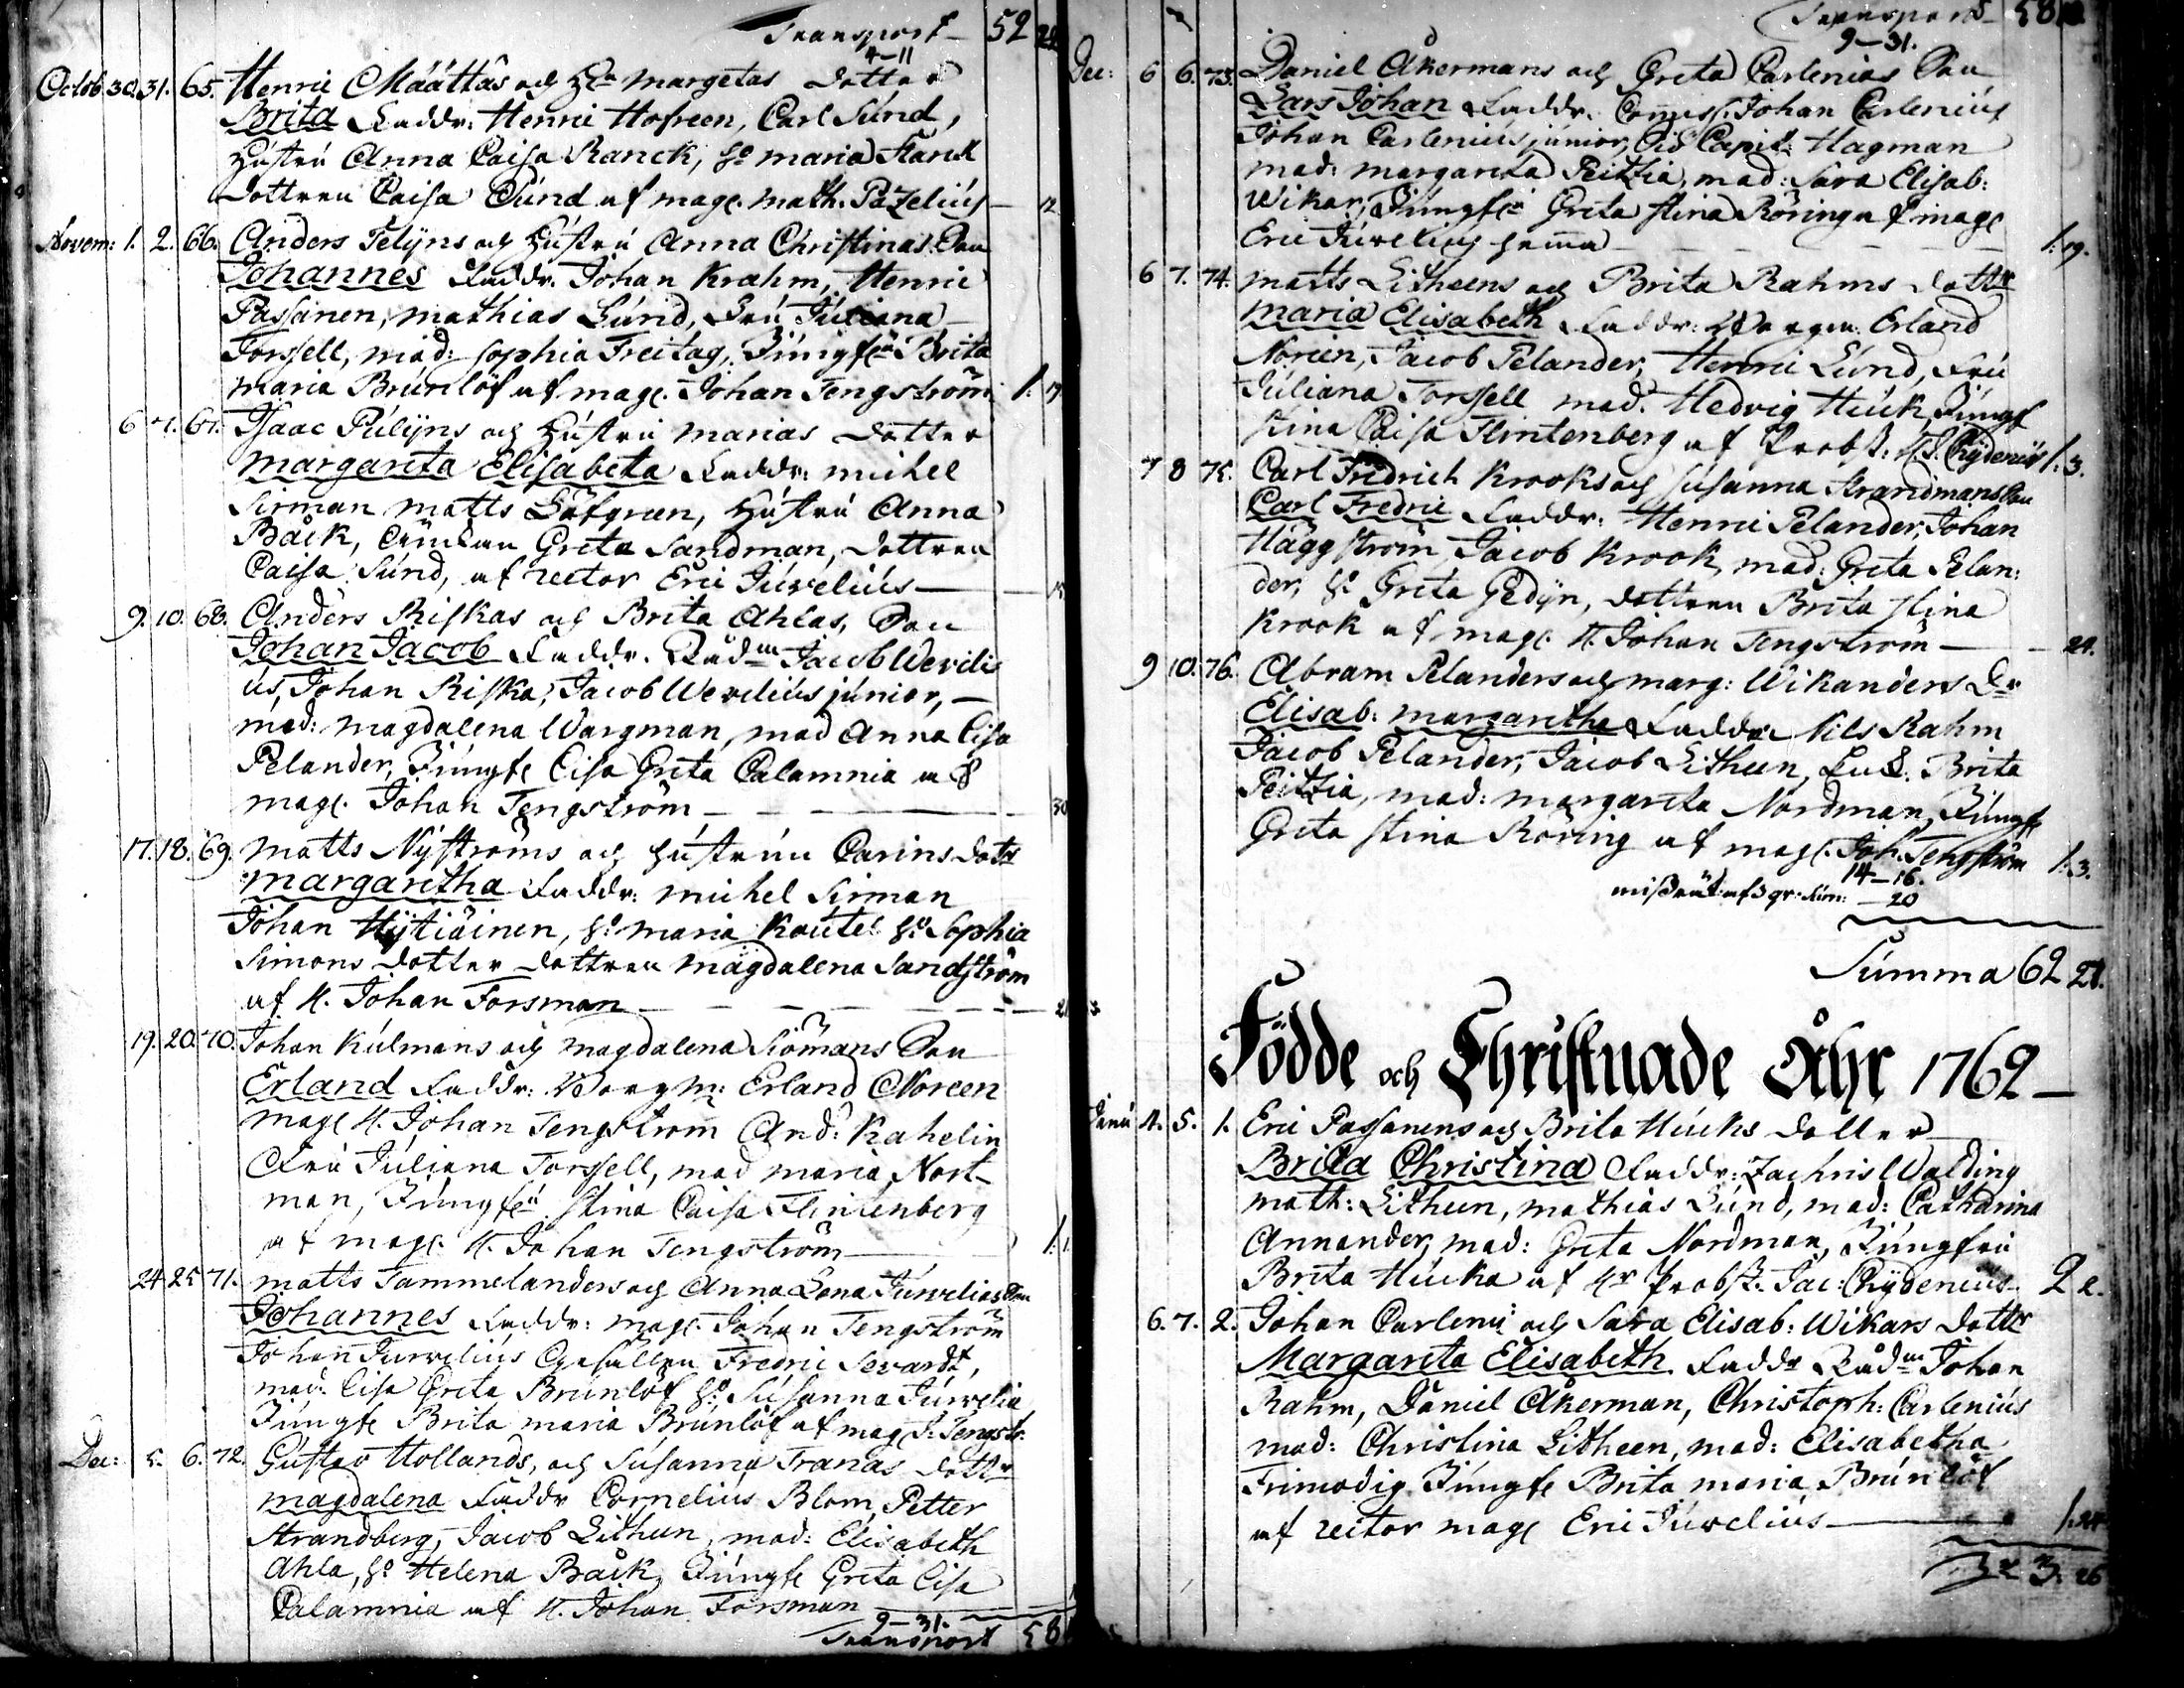 Transport 52
4-11
Octob. 30. 31. 65. Henric Määttäs och H:u Margetas dotter
Brita Faddr: Henric Hofreen, Carl Sund,
Hústrú Anna Caisa Ranck, H:o Maria
dottren Caisa Sund af Mag. Math. Pazelius 12
Novem: 1. 2. 66. Anders Telijns och Hústrú Anna Christinas Son
Johannes Faddr. Johan Krahm, Henric
Passanen, Mathias Lúnd, Frú Júliana
Forssell, Mad: Sophia Freitag, Júngfrú Brita
Maria Brúnlöf af Mag. Johan Tengström 1. 19
6 7. 67. Isaac Púlijns och Hústrú Marias dotter
Margareta Elisabeta Faddr: Michel
Sirman Matts Löfgren, Hústrú Anna
Bäck, Greta Sandman, dottren
Caisa Súnd, af rector Eric Júvelius
9. 10. 68. Anders Riskas och Brita Ahlas, Son
Johan Jacob Faddr. Rådm: Jacob Wevili
us, Johan Riska, Jacob Wevelius júnior,
Mad: Magdalena Wargman, Mad Anna Lisa
Pelander, Júngfr Lisa Greta Calamnia af
Mag. Johan Tengström 30
17. 18. 69. Matts Nyströms och hústrún Carins dott
Margaretha Faddr: Michel Sirman
Johan Hytiäinen, H:o Maria Kautel H:o Sophia
Simons dotter dottren Magdalena Sandström
af H. Johan Forsman 21
19. 20. 70. Johan Kúlmans och Magdalena Siömans Son
Erland Faddr: Borgm: Erland Noreen
Mag H. Johan Tengström And: Kahelin
Frú Júliana Forssell, Mad Maria Nort-
man, Júngfrú Stina Caisa Flintenberg
af Mag. H. Johan Tengström 1.
24 25 71. Matts Tammelanders och Anna Lena Júvelias Son
Johannes Faddr: Mag. Johan Tengström
Johan Júvelius Gesällen Fredric Sevardt,
Mad: Lisa Greta Brúnlöf H:o Súsanna Júvelia
Júngfr Brita Maria Brúnlöf af Mag J: Tengstr.
Dec: 5. 6. 72. Gústav Hollands, och Súsanna Tranas dottr
Magdalena Faddr Cornelius Blom, Petter
Strandberg, Jacob Litheen, Mad: Elisabeth
Ahla, H:o Helena Bäck, Júngfr Greta Lisa
Calamnia af H. Johan Forsman
9-31.
Transport 58
Transport 58
9-31.
Dec: 6 6. 73. Daniel Åkermans och Greta Carlenias Son
Lars Johan Faddr. Comiss. Johan Carlenius
Johan Carlenius júnior, Capit: Hagman
Mad: Margareta Peitzia, Mad: Sara Elisab:
Wikar, Júngfrú Greta Stina Röring af Mag
Eric Júvelius hemma 1. 19.
6 7. 74. Matts Litheens och Brita Rahms dottr
Maria Elisabeth Faddr: Borgm. Erland
Noreen, Jacob Pelander, Henric Lúnd, Frú
Júliana Forssell Mad. Hedvig Húck, Júngf
Stina Caisa Flintenberg af Probst: H. J. Chydenius 1. 3.
7 8 75. Carl Fredrich Krooks och Súsanna Strandmans Son
Carl Fredric Faddr: Henric Pelander, Johan
Häggström, Jacob Krook, Mad: Greta Pelan:
der, H:o Greta Gedijn, dottren Brita Stina
Krook af Mag. H. Johan Tengström 24.
9 10. 76. Abram Pelanders och Marg: Wikanders Dr
Elisab: Margaretha Faddr. Nils Rahm
Jacob Pelander, Jacob Litheen, Brita
Peitzia, Mad: Margareta Nordman, Júngfr
Greta Stina Röring af Mag. Joh. Tengström 1. 3.
14-16.
20
Súmma 62 21.
Födde och Christnade Åhr 1762
Janu 4. 5. 1. Eric Passanens och Brita Húcks dotter
Brita Christina Faddr: Zachris Walding
Math: Litheen, Mathias Lúnd, Mad: Catharina
Annander, Mad: Greta Nordman, Júngfrú
Brita Húcka af Hr Probst. Jac: Chydenius 2 2.
6. 7. 2. Johan Carlenii och Sara Elisab: Wikars dottr
Margareta Elisabeth Faddr Rådm Johan
Rahm, Daniel Åkerman, Christoph: Carlenius
Mad: Christina Litheen, Mad: Elisabetha
Frimodig Júngfr Brita Maria Brúnlöf
af rector Mag Eric Júvelius 1. 24
3. 26